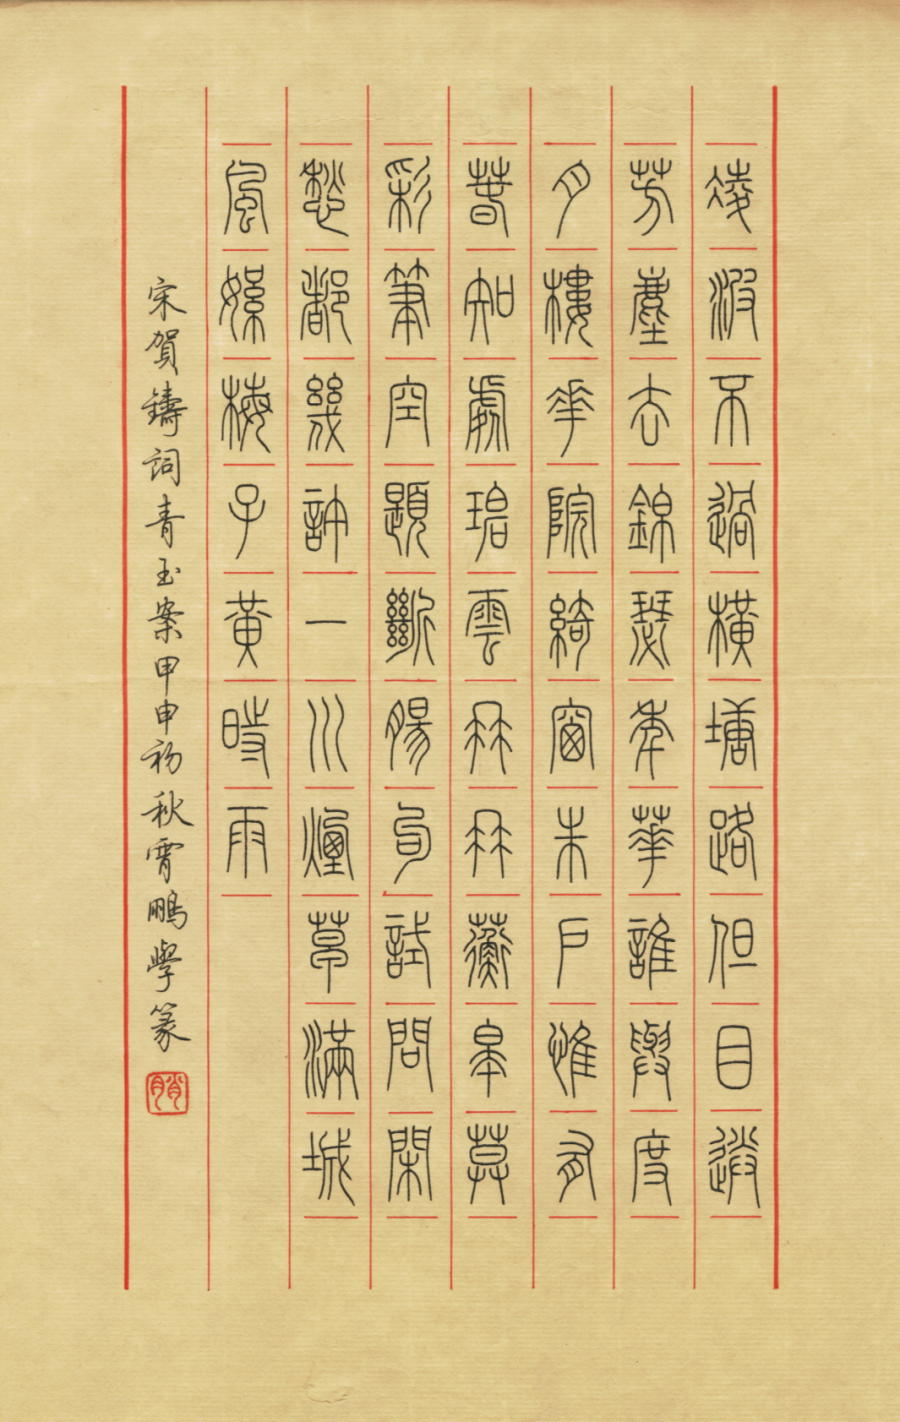 凌波不過橫塘路但目送
芳塵去錦瑟年華誰與度
月樓花院綺窗朱戶惟有
春知處碧雲冉冉蘅皋暮
彩筆空題斷腸句試問閑
愁都幾許一川煙草滿城
風絮梅子黃時雨
宋賀鑄詞青玉案甲申初秋霄鵬學篆